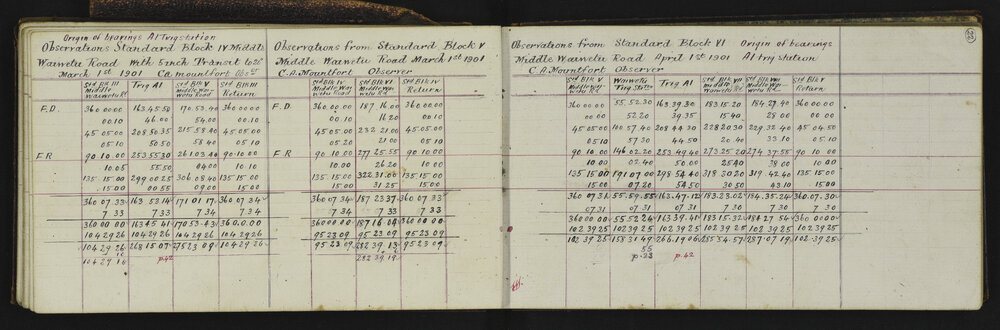 Origin of bearings A1 Trig station
Observations Standard Block IV Middle
Waiwetu Road With 5 inch Transit
March 1st 1901 C.A. Mountfort Obsr
Std Blk III Middle Waiwetu Rd | Trig A1 | Std Blk V Middle Wai wetu Road | Std Blk III Return
F.D. 360 00 00 | 163.45.50 | 170.53.40 | 360 00 00
00.10 | 46.00 | 54.00 | 00.10
45 05 00 | 208 50.35 | 215 58.40 | 45 05.00
05.10 | 50.50 | 58 40 | 05.10
F.R 90 10.00 | 253 55 30 | 261.03.40 | 90.10.00
10.05 | 55.50 | 04.00 | 10.10
135 15 00 | 299 00 25 | 306 08 40 | 135 15 00
15.00 | 00 55 | 09.00 | 15.00
360 07 33 | 163 53.14 | 171 01 17 | 360 07 34
7 33 | 7 33 | 7 34 | 7 34
360 00 00 | 163 45 41 | 170 53.43 | 360.0.00
104 29 26 | 104 29 26 | 104 29 26 | 104 29 26
104 29 26 | 268 15 07 | 275 23 09 | 104 29 26
104 29 16 | p.42
Observations from Standard Block V
Middle Waiwetu Road March 1st 1901
C.A. Mountfort Observer
Std Blk IV Middle Wai wetu Road | Std Blk VI Middle Wai wetu Rd | Std Blk IV Return
F.D. 360 00 00 | 187 16 00 | 360 00 00
00 10 | 16 20 | 00 10
45 05 00 | 232 21 00 | 45 05 00
05 20 | 21 00 | 05 10
F R 90 10.00 | 277 25 55 | 90 10.00
10 00 | 26 20 | 10.00
135 15 00 | 322 31 00 | 135 15 00
15 00 | 31 25 | 15 00
360 07 34 | 187 23 37 | 360 07 33
7 34 | 7 33 | 7 33
360 00 00 | 187 16 04 | 360 00 00
95 23 09 | 95 23 09 | 95 23 09
95 23 09 | 282 39 13 | 95 23 09
282 39 19
Observations from Standard Block VI Origin of bearings
Middle Waiwetu Road April 1st 1901 A1 trig station
C.A. Mountfort Observer
Std Blk V Middle Wai wetu Rd | Waiwetu Trig Statn | Trig A1 | Std Blk VII middle Waiwetu Rd | Std Blk VII Middle Wai wetu Rd | Std Blk V Return
360 00 00 | 55.52.30 | 163 39 30 | 183 15.20 | 184 27.40 | 360 00 00
00 10 | 52 20 | 39.35 | 15 40 | 28 00 | 00 00
45 05 00 | 100 57.40 | 208 44 30 | 228 20 30 | 229 32 40 | 45 04 50
05 10 | 57 30 | 44 50 | 20 40 | 33 10 | 05 10
90 10.00 | 146 02.20 | 253 49.40 | 273 25 20 | 274 37 55 | 90 10 00
10 00 | 02.40 | 50 00 | 25 40 | 38 00 | 10 00
135 15 00 | 191 07 00 | 298 54 40 | 318 30 20 | 319 42 40 | 135 15 00
15 00 | 07.20 | 54 50 | 30 50 | 43 10 | 15 00
360 07 31 | 55.59.55 | 163.47.12 | 183.23.02 | 184.35.24 | 360.07.30
07 31 | 07 31 | 7 31 | 7 30 | 7 30 | 7 30
360 00 00 | 55 52 24 | 163 39.41 | 183 15 32 | 184 27 54 | 360 00 00
102 39 25 | 102 39 25 | 102 39 25 | 102 39 25 | 102 39 25 | 102 39 25
102 39 25 | 158 31 49 | 266.19 06 | 285 54.57 | 287 07 19 | 102 39 25
55
p.23 | p.42